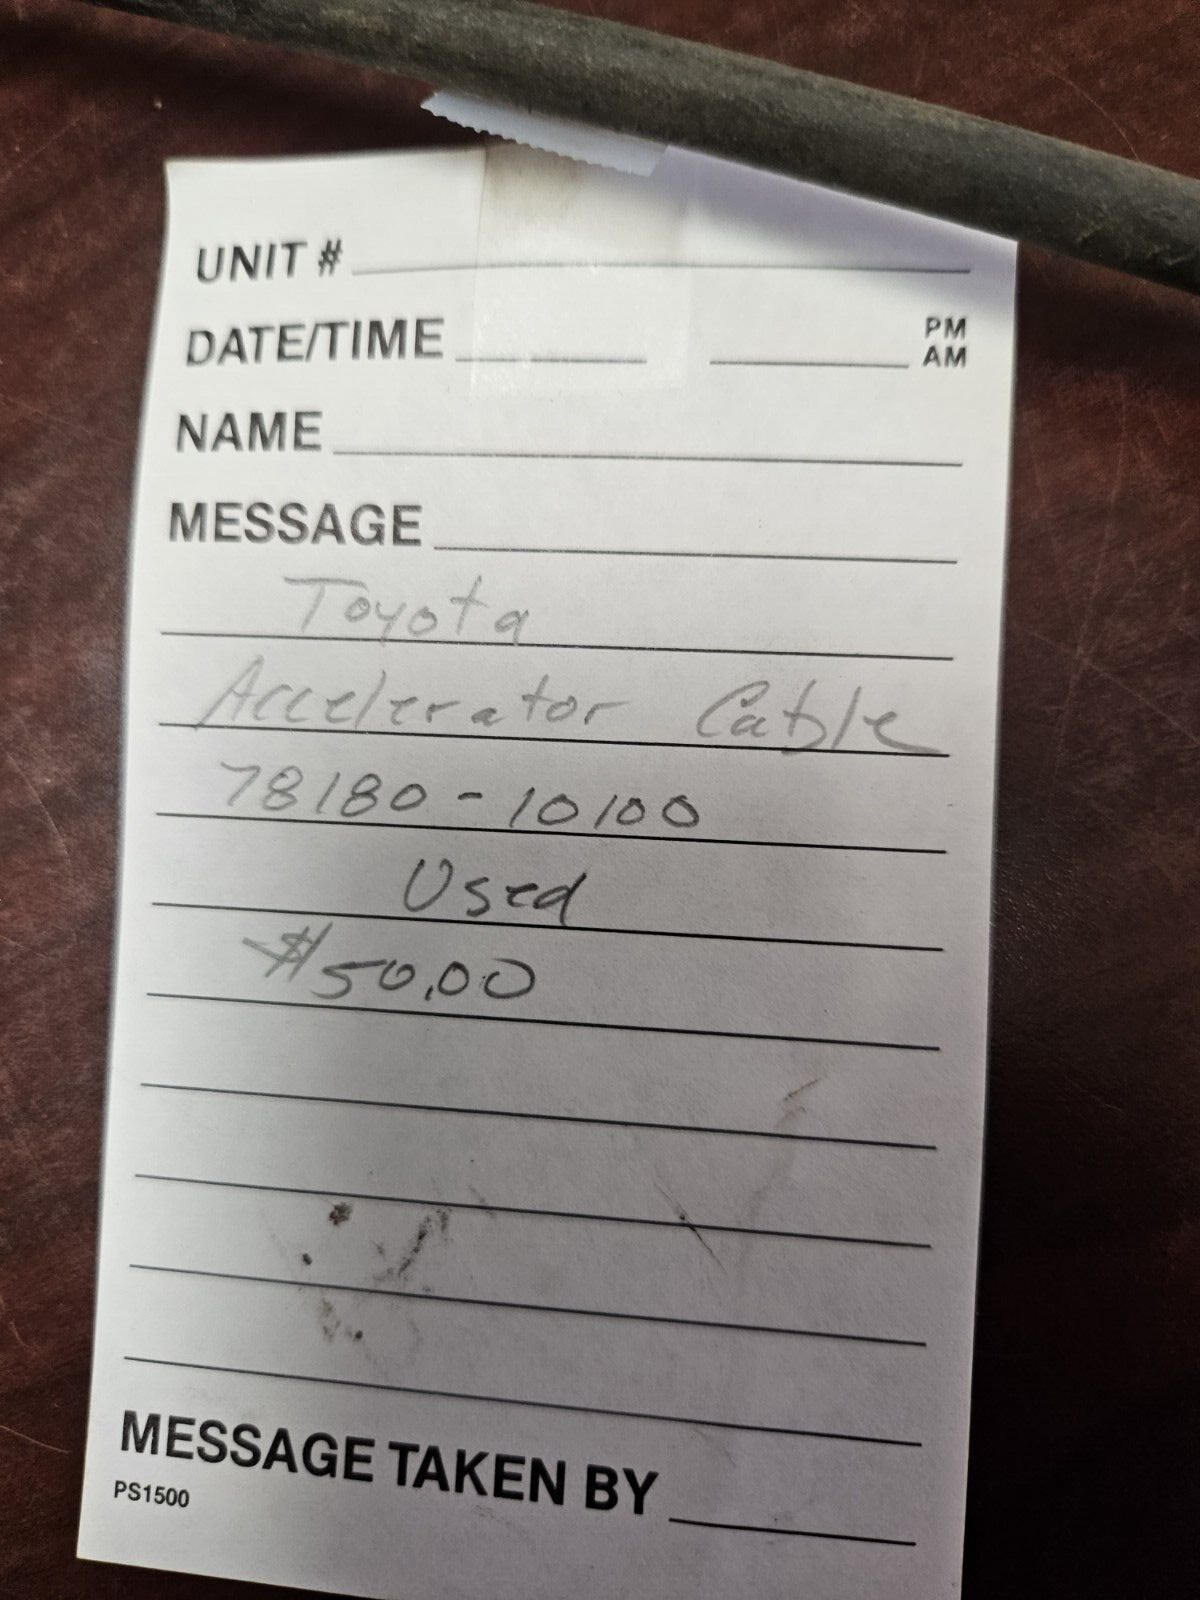 UNIT #
DATE/TIME PM
AM
NAME
MESSAGE
Toyota
Accelerator Cable
78180-10100
Used
$50.00
MESSAGE TAKEN BY
PS1500